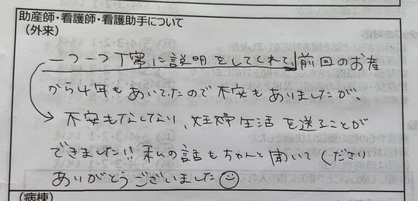 助産師・看護師・看護助手について
(外来)
一つ一つ丁寧に説明をしてくれて、前回のお産
から4年もあいてたので不安もありましたが、
→不安もなくなり、妊婦生活を送ることが
できました!! 私の話もちゃんと聞いてくださり
ありがとうございました☺
(病棟)